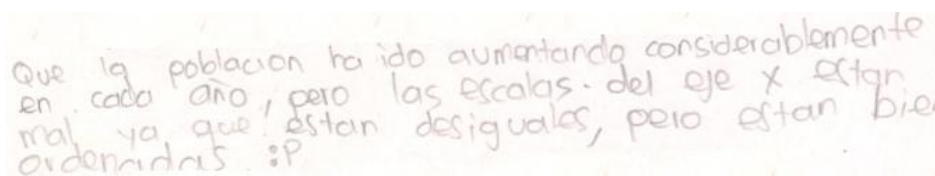 Que la poblacion ha ido aumentando considerablemente
en cada año, pero las escalas. del eje x estan
mal, ya que estan desiguales, pero estan bie
ordenadas :P